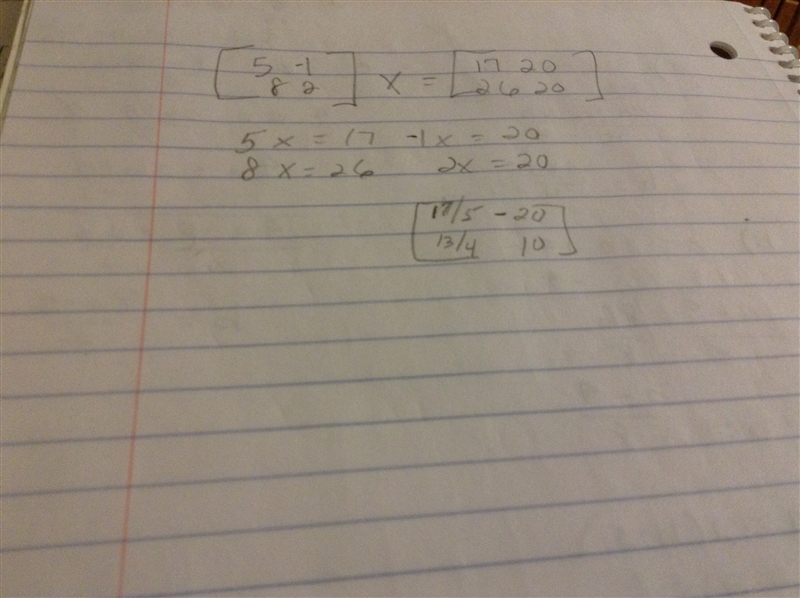 [ 5 -1 ] x = [ 17 20 ]
[ 8 2 ] [ 26 20 ]
5x = 17 -1x = 20
8x = 26 2x = 20
[ 17/5 -20 ]
[ 13/4 10 ]